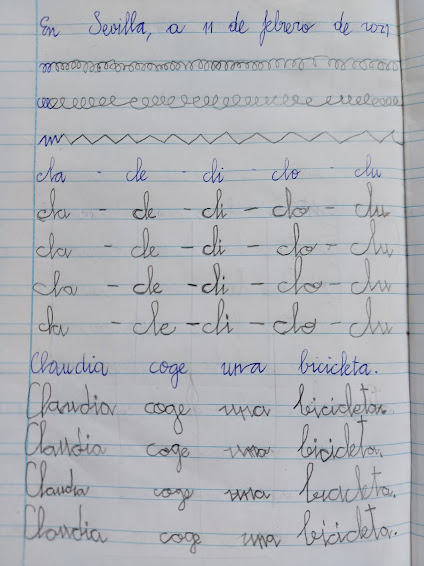 En Sevilla, a 11 de febrero de 2021
cla - cle - cli - clo - clu
cla - cle - cli - clo - clu
cla - cle - cli - clo - clu
cla - cle - cli - clo - clu
cla - cle - cli - clo - clu
Claudia coge una bicicleta.
Claudia coge una bicicleta.
Claudia coge una bicicleta.
Claudia coge una bicicleta.
Claudia coge una bicicleta.